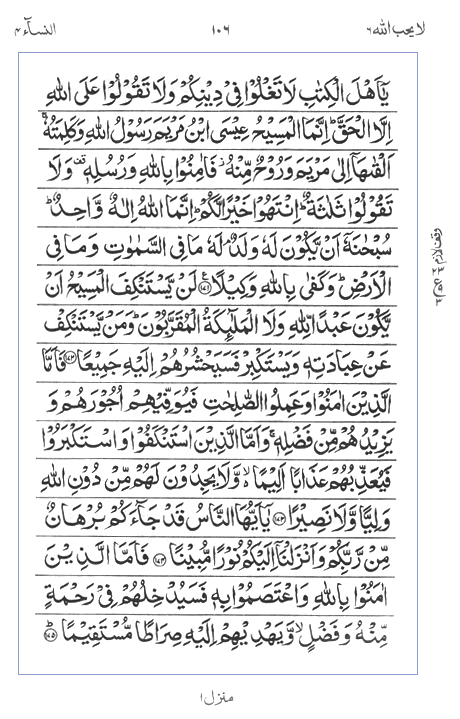 لا یحب الله ٦ ١٠٦ النسآء ٤
يٰۤاَهْلَ الْكِتٰبِ لَا تَغْلُوْا فِيْ دِيْنِكُمْ وَلَا تَقُوْلُوْا عَلَى اللّٰهِ
اِلَّا الْحَقَّ ؕ اِنَّمَا الْمَسِيْحُ عِيْسَى ابْنُ مَرْيَمَ رَسُوْلُ اللّٰهِ وَكَلِمَتُهٗ ۚ
اَلْقٰىهَاۤ اِلٰى مَرْيَمَ وَرُوْحٌ مِّنْهُ ؗ فَاٰمِنُوْا بِاللّٰهِ وَرُسُلِهٖ ۚ۫ وَلَا
تَقُوْلُوْا ثَلٰثَةٌ ؕ اِنْتَهُوْا خَيْرًا لَّكُمْ ؕ اِنَّمَا اللّٰهُ اِلٰهٌ وَّاحِدٌ ؕ
سُبْحٰنَهٗۤ اَنْ يَّكُوْنَ لَهٗ وَلَدٌ ۘ لَهٗ مَا فِي السَّمٰوٰتِ وَمَا فِي
الْاَرْضِ ؕ وَكَفٰى بِاللّٰهِ وَكِيْلًا ﴿١٧١﴾ لَنْ يَّسْتَنْكِفَ الْمَسِيْحُ اَنْ
يَّكُوْنَ عَبْدًا لِّلّٰهِ وَلَا الْمَلٰٓئِكَةُ الْمُقَرَّبُوْنَ ؕ وَمَنْ يَّسْتَنْكِفْ
عَنْ عِبَادَتِهٖ وَيَسْتَكْبِرْ فَسَيَحْشُرُهُمْ اِلَيْهِ جَمِيْعًا ﴿١٧٢﴾ فَاَمَّا
الَّذِيْنَ اٰمَنُوْا وَعَمِلُوا الصّٰلِحٰتِ فَيُوَفِّيْهِمْ اُجُوْرَهُمْ وَ
يَزِيْدُهُمْ مِّنْ فَضْلِهٖ ۚ وَاَمَّا الَّذِيْنَ اسْتَنْكَفُوْا وَاسْتَكْبَرُوْا
فَيُعَذِّبُهُمْ عَذَابًا اَلِيْمًا ۙ۬ وَّلَا يَجِدُوْنَ لَهُمْ مِّنْ دُوْنِ اللّٰهِ
وَلِيًّا وَّلَا نَصِيْرًا ﴿١٧٣﴾ يٰۤاَيُّهَا النَّاسُ قَدْ جَآءَكُمْ بُرْهَانٌ
مِّنْ رَّبِّكُمْ وَاَنْزَلْنَاۤ اِلَيْكُمْ نُوْرًا مُّبِيْنًا ﴿١٧٤﴾ فَاَمَّا الَّذِيْنَ
اٰمَنُوْا بِاللّٰهِ وَاعْتَصَمُوْا بِهٖ فَسَيُدْخِلُهُمْ فِيْ رَحْمَةٍ
مِّنْهُ وَفَضْلٍ ۙ وَّيَهْدِيْهِمْ اِلَيْهِ صِرَاطًا مُّسْتَقِيْمًا ﴿١٧٥﴾
وقف لازم
منزل ١